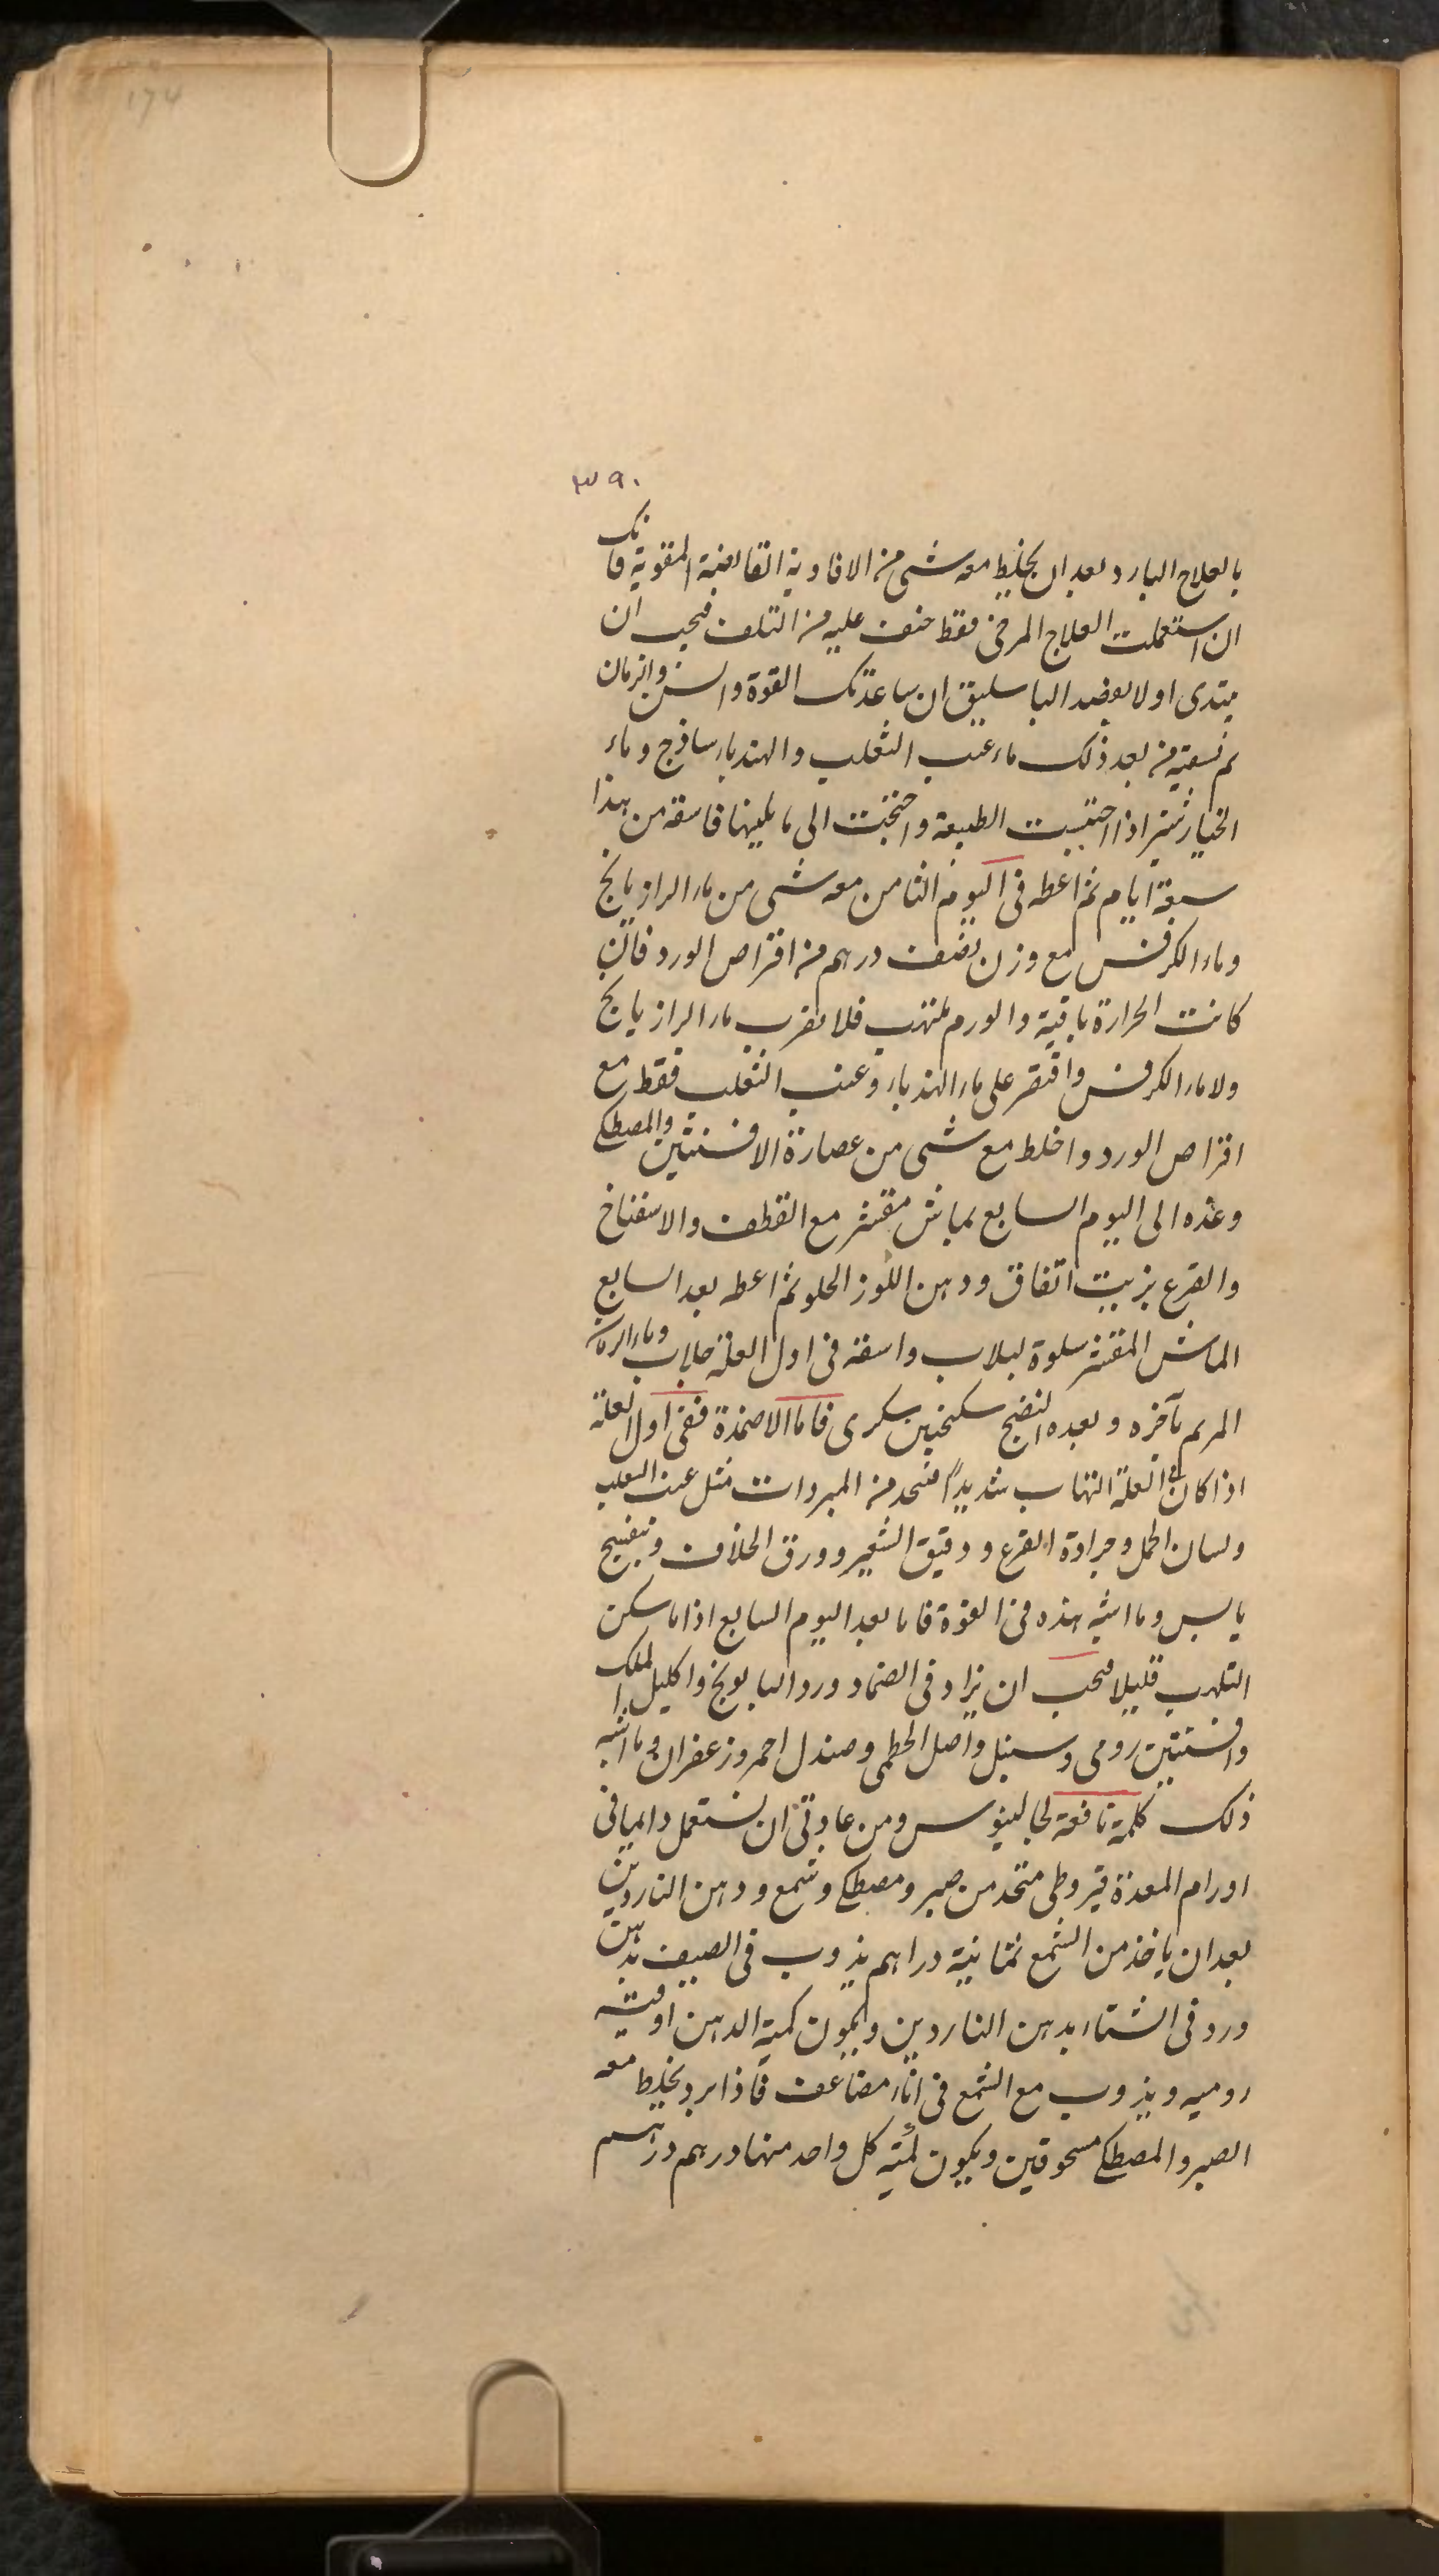 174
۳۹۰
بالعلاج البارد بعد ان يخلط معه شى من الافاوية القابضة المقوية فانك
ان استعملت العلاج المرخى فقط خفت عليه من التلف فيجب ان
يبتدى اولا بفصد الباسليق ان ساعدتك القوة والسن والزمان
ثم تسقيه من بعد ذلك ماء عنب الثعلب والهندباء ساذج وماء
الخيارشنبر اذا احتبست الطبيعة واحتجت الى ما يلينها فاسقه من هذا
سبعة ايام ثم اعطه فى اليوم الثامن معه شى من ماء الرازيانج
وماء الكرفس مع وزن نصف درهم من اقراص الورد فان
كانت الحرارة باقية والورم ملتهب فلا تقرب ماء الرازيانج
ولا ماء الكرفس واقتصر على ماء الهندباء وعنب الثعلب فقط مع
اقراص الورد واخلط مع شى من عصارة الافسنتين والمصطكى
وغذه الى اليوم السابع بماش مقشر مع القطف والاسفناخ
والقرع بزيت انفاق ودهن اللوز الحلو ثم اعطه بعد السابع
الماش المقشر سلوة لبلاب واسقه فى اول العلة جلاب وماء
بآخره وبعده النضج سكنجبين سكرى فاما الاضمدة ففى اول العلة
اذا كان فى العلة التهاب شديدا فتتخذ من المبردات مثل عنب الثعلب
ولسان الحمل وجرادة القرع ودقيق الشعير وورق الخلاف وبنفسج
يابس وما اشبه هذه فى القوة فاما بعد اليوم السابع اذا ما سكن
التلهب قليلا فيجب ان يزاد فى الضماد ورد البابونج واكليل الملك
وافسنتين رومى وسنبل واصل الخطمى وصندل احمر وزعفران وما اشبه
ذلك كلمة نافعة لجالينوس ومن عادتى ان نستعمل دائما فى
اورام المعدة قيروطى متخذ من صبر ومصطكى وشمع ودهن الناردين
بعد ان ياخذ من الشمع ثمانية دراهم يذوب فى الصيف بدهن
ورد فى الشتاء بدهن الناردين ويكون كمية الدهن اوقية
روميه ويذوب مع الشمع فى اناء مضاعف فاذا برد يخلط معه
الصبر والمصطكى مسحوقين ويكون كمية كل واحد منها درهم درهم